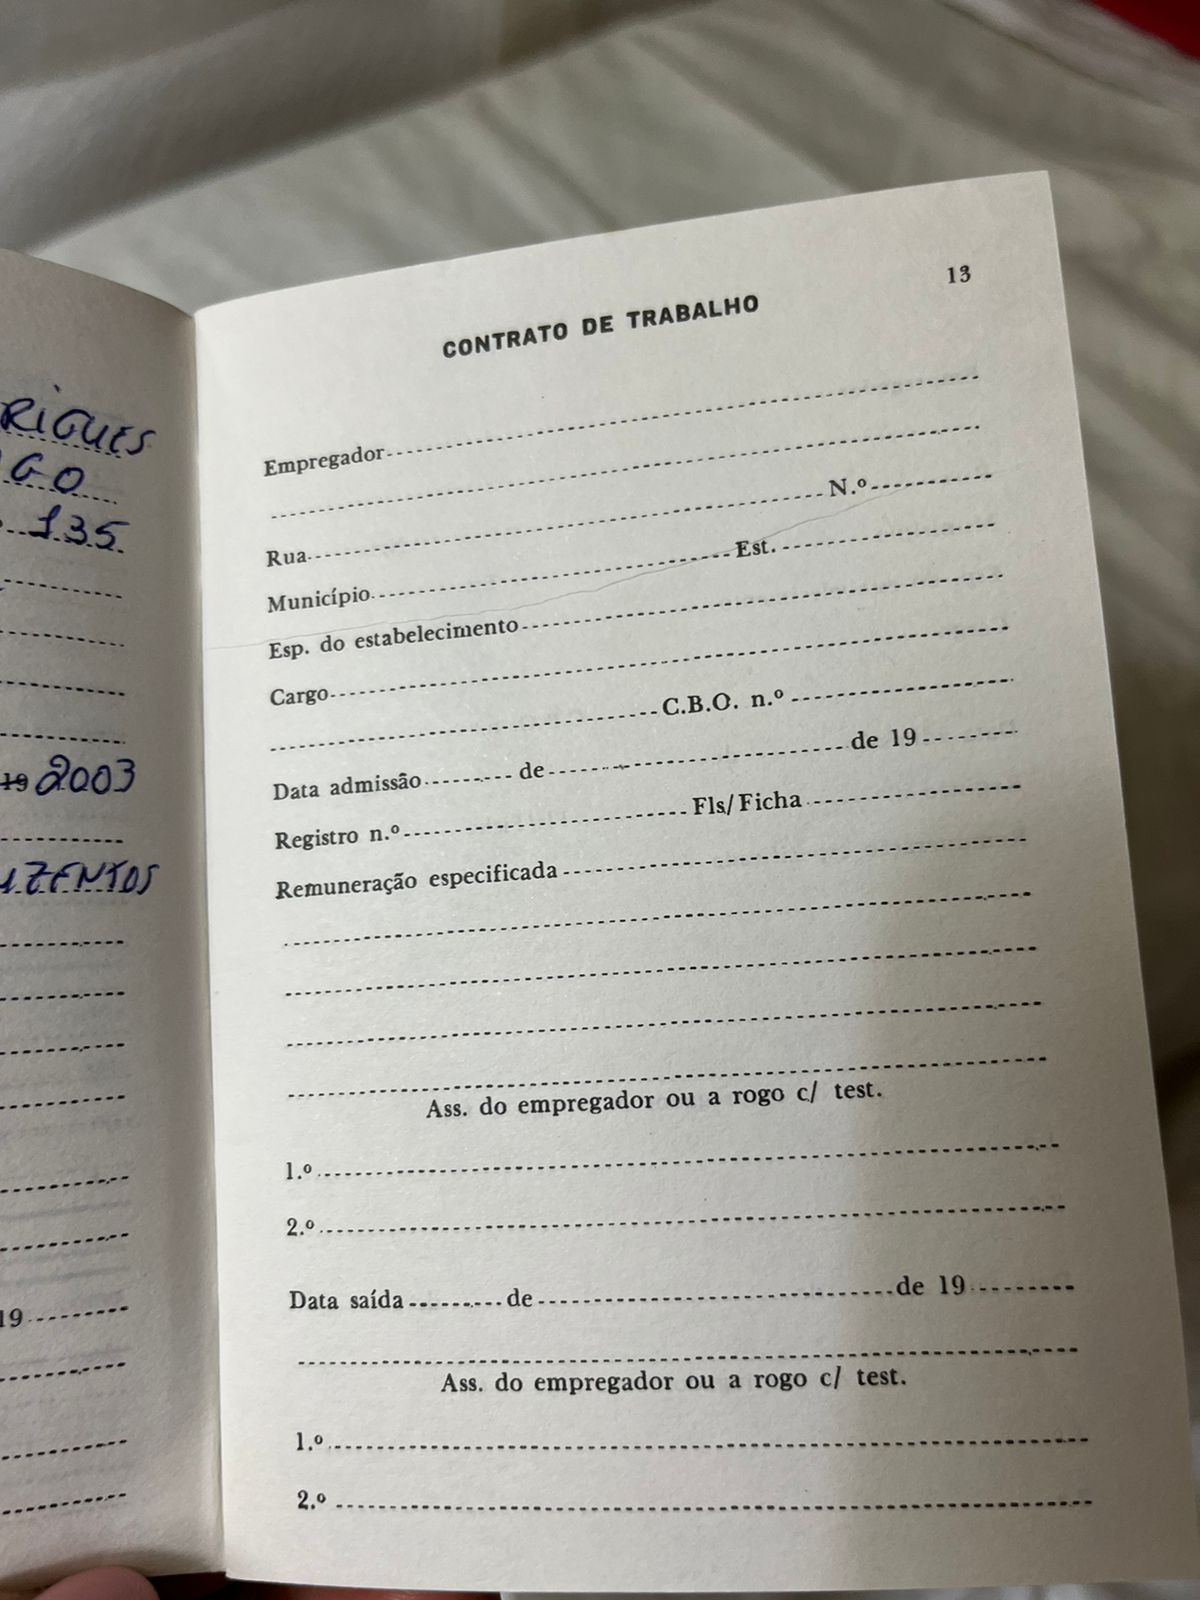 RIGUES
GO
135
19 2003
ZENTOS
19
13
CONTRATO DE TRABALHO
Empregador
Rua N.º
Município Est.
Esp. do estabelecimento
Cargo
C.B.O. n.º
Data admissão de de 19
Registro n.º Fls/Ficha
Remuneração especificada
Ass. do empregador ou a rogo c/ test.
1.º
2.º
Data saída de de 19
Ass. do empregador ou a rogo c/ test.
1.º
2.º